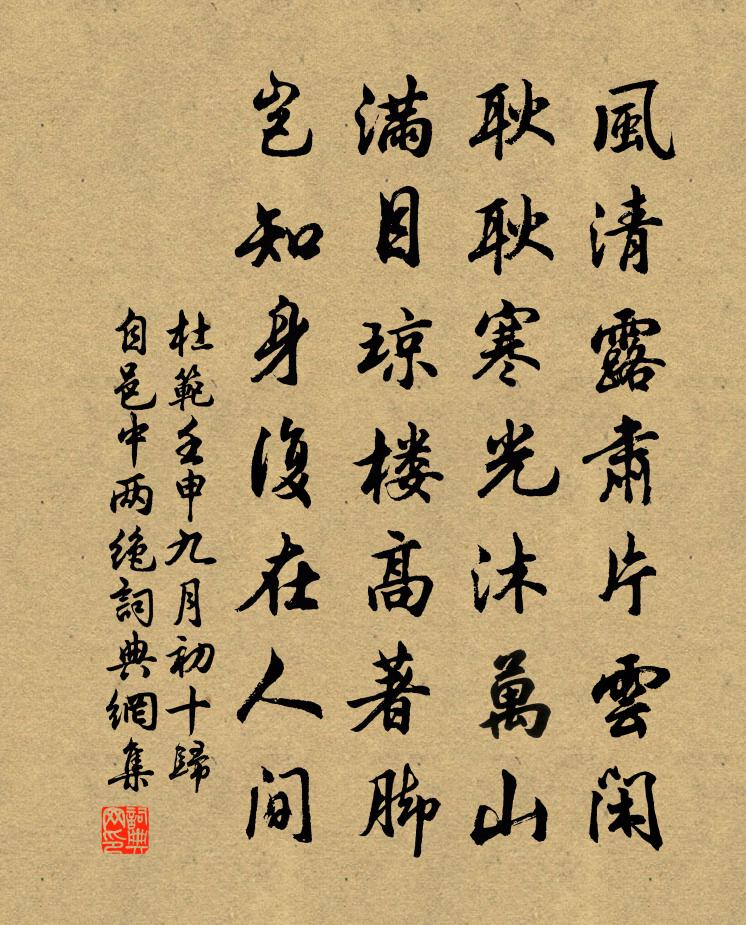 風清露肅片雲閑
耿耿寒光沐萬山
滿目琼楼高著脚
岂知身復在人间
杜範壬申九月初十歸
自邑中两绝詞典網集
詞典网印